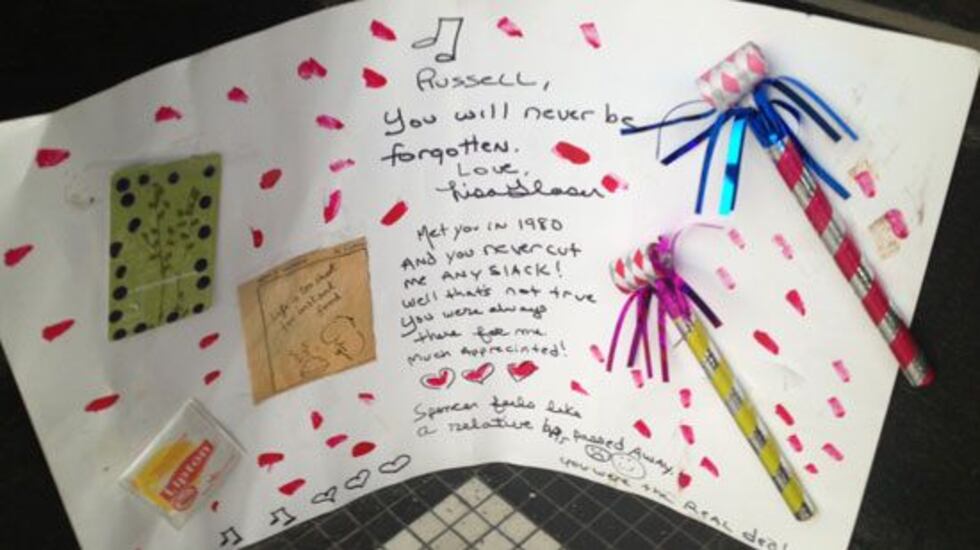 Russell,
You will never be
forgotten.
Love,
Met you in 1980
And you never cut
me ANY SLACK!
Well that's not true
you were always
there for me
Much Appreciated!
Spencer feels like
a relative passed Away.
you were the REAL deal
Life is too short
for instant
food
Lipton